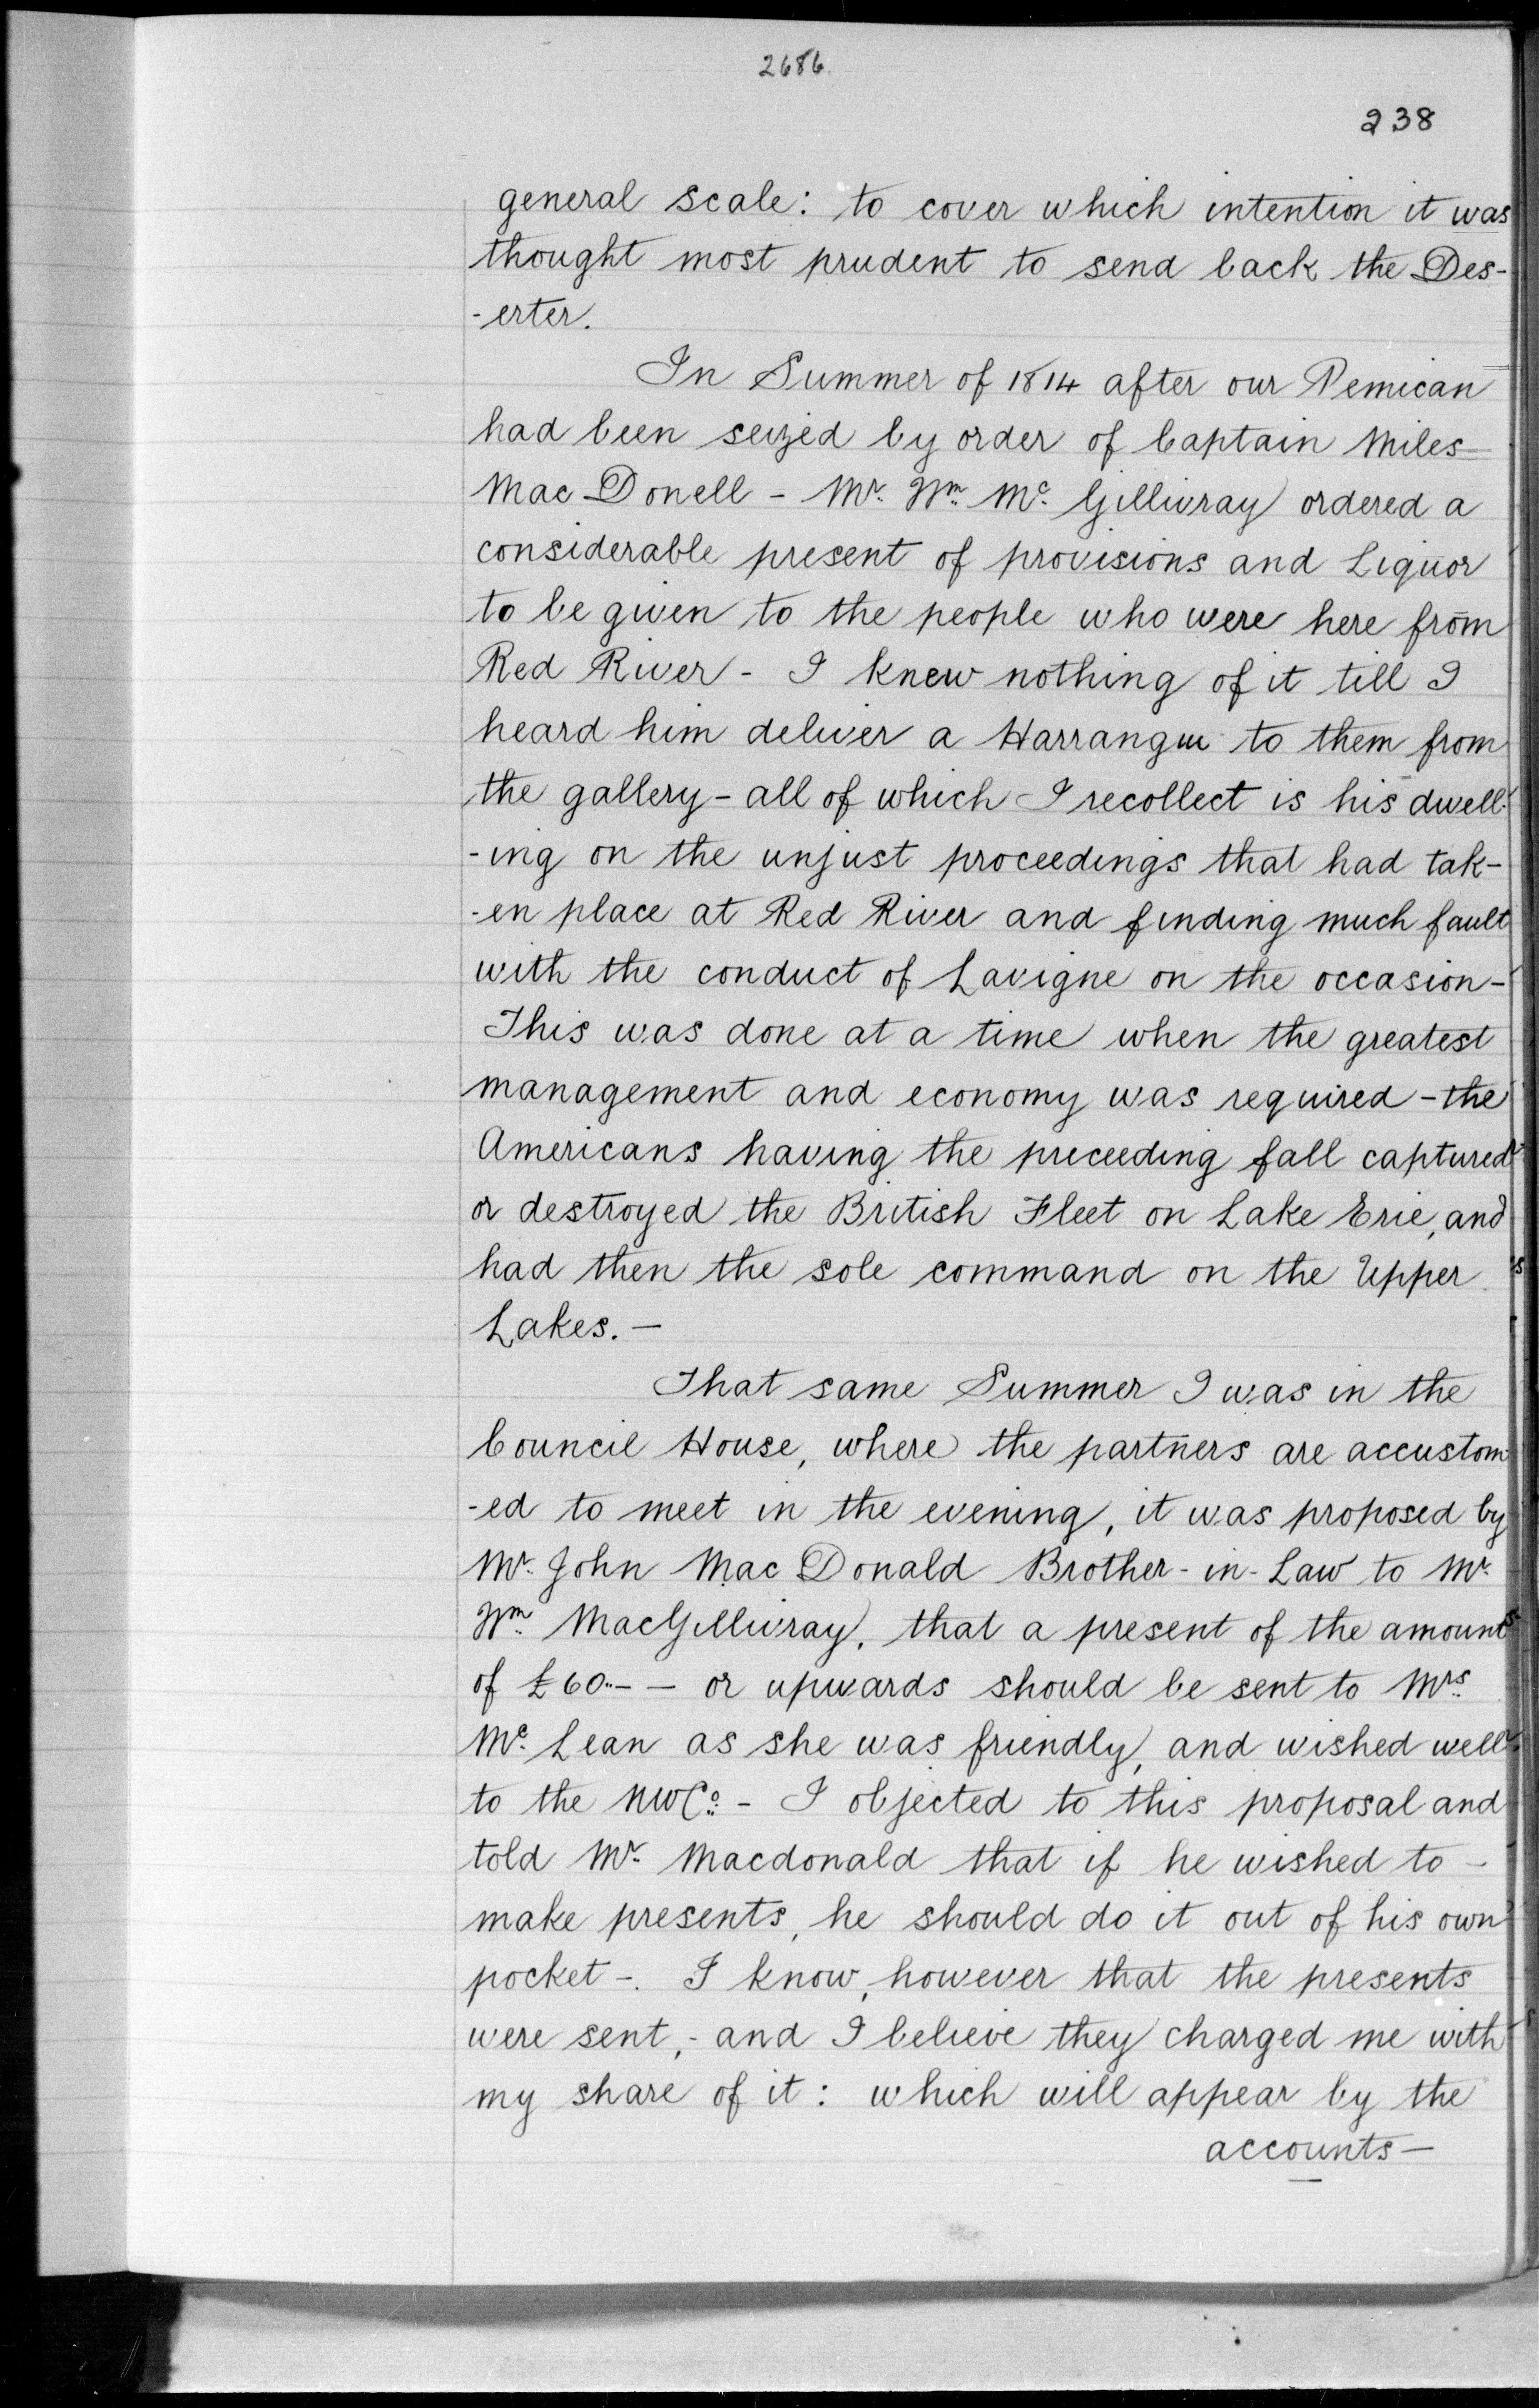 2686.
238
general scale: to cover which intention it was
thought most prudent to send back the Des-
-erter.
In Summer of 1814 after our Pemican
had been seized by order of Captain Miles
Mac Donell - Mr. Wm. Mc. Gillivray ordered a
considerable present of provisions and Liquor
to be given to the people who were here from
Red River - I knew nothing of it till I
heard him deliver a Harrangue to them from
the gallery - all of which I recollect is his dwell-
-ing on the unjust proceedings that had tak-
-en place at Red River and finding much fault
with the conduct of Lavigne on the occasion -
This was done at a time when the greatest
management and economy was required - the
Americans having the preceeding fall captured
or destroyed the British Fleet on Lake Erie, and
had then the sole command on the Upper
Lakes. -
That same Summer I was in the
Council House, where the partners are accustom
-ed to meet in the evening, it was proposed by
Mr. John Mac Donald Brother-in-Law to Mr.
Wm. MacGillivray, that a present of the amount
of £60.. - - or upwards should be sent to Mrs.
Mc. Lean as she was friendly, and wished well
to the NWCo. - I objected to this proposal and
told Mr. Macdonald that if he wished to -
make presents, he should do it out of his own
pocket -. I know, however that the presents
were sent, - and I believe they charged me with
my share of it: which will appear by the
accounts -